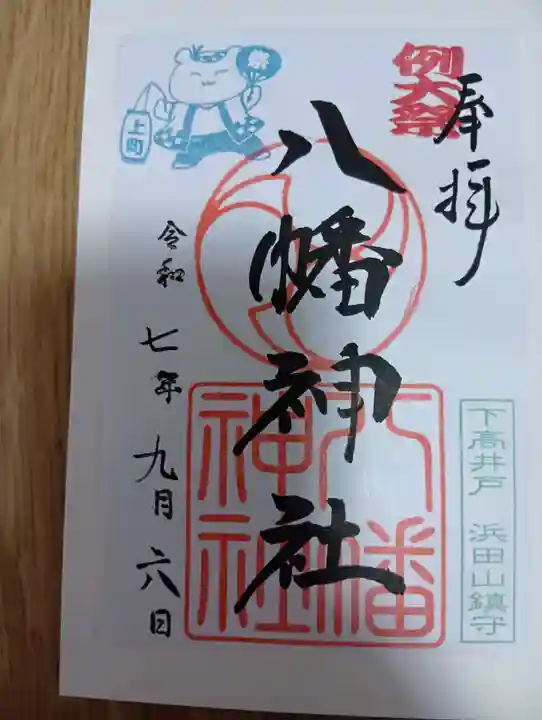 奉拝
例大祭
八幡神社
八幡
神社
下高井戸 浜田山鎮守
令和 七年 九月 六日
祭
上町